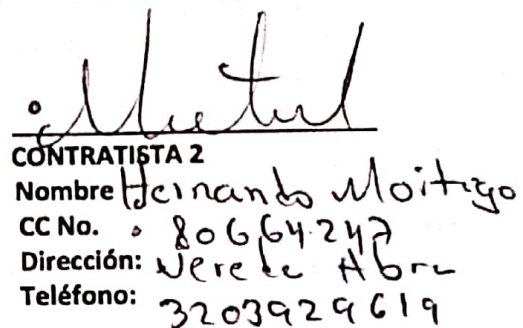 CONTRATISTA 2
Nombre Hernando Moitigo
CC No. 80664.247
Dirección: Vereda Abra
Teléfono: 3203929619